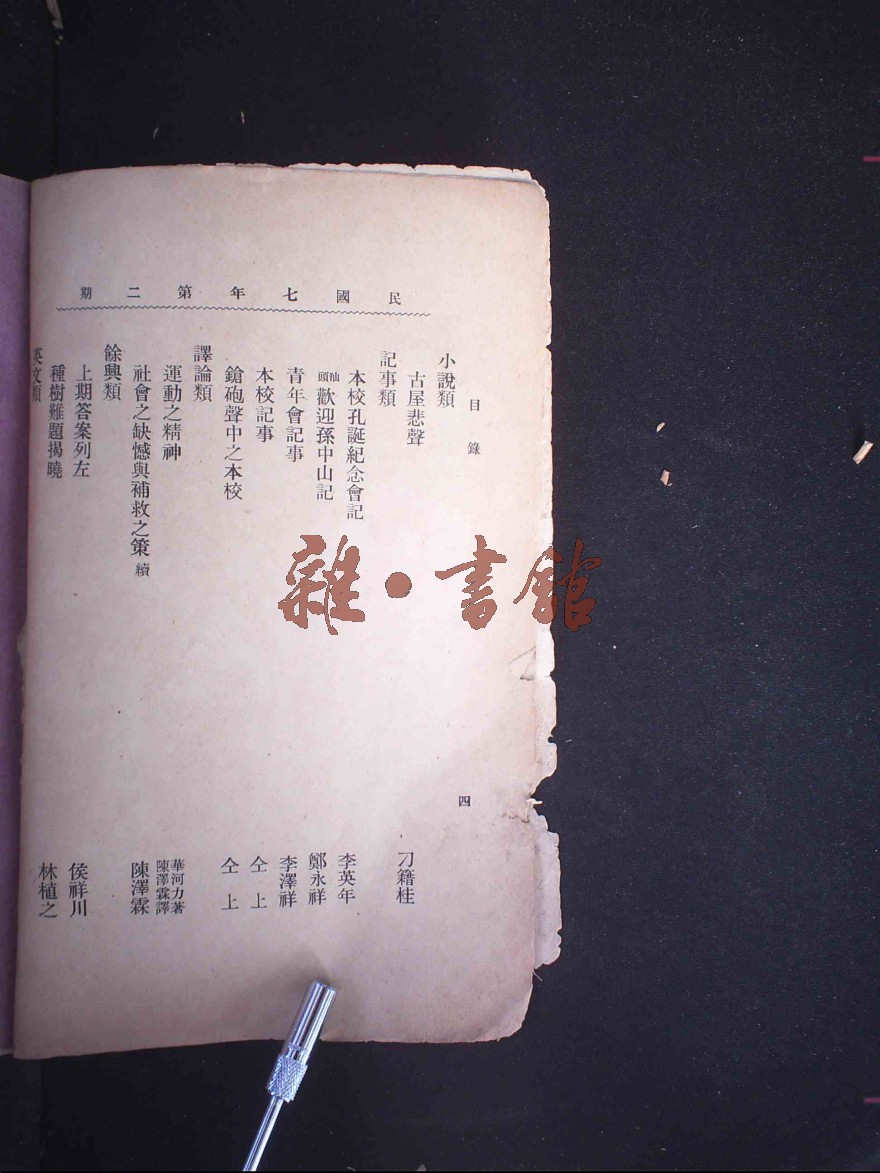 民國七年第二期
目錄
四
小說類
古屋悲聲 刁籍桂
記事類
本校孔誕紀念會記 李英年
汕頭歡迎孫中山記 鄭永祥
青年會記事 李澤祥
本校記事 仝上
鎗砲聲中之本校 仝上
譯論類
運動之精神 華河力著 陳澤霖譯
社會之缺憾與補救之策 續 陳澤霖
餘興類
上期答案列左 侯祥川
種樹難題揭曉 林植之
英文類
雜·書館